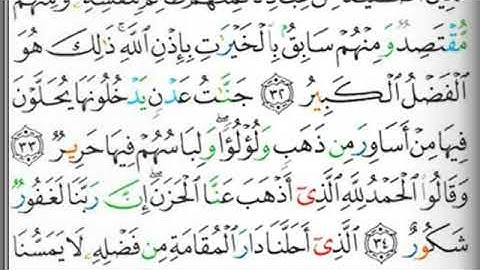 مُّقۡتَصِدٞ وَمِنۡهُمۡ سَابِقُۢ بِٱلۡخَيۡرَٰتِ بِإِذۡنِ ٱللَّهِۚ ذَٰلِكَ هُوَ
ٱلۡفَضۡلُ ٱلۡكَبِيرُ ٣٢ جَنَّٰتُ عَدۡنٖ يَدۡخُلُونَهَا يُحَلَّوۡنَ
فِيهَا مِنۡ أَسَاوِرَ مِن ذَهَبٖ وَلُؤۡلُؤٗاۖ وَلِبَاسُهُمۡ فِيهَا حَرِيرٞ ٣٣
وَقَالُواْ ٱلۡحَمۡدُ لِلَّهِ ٱلَّذِيٓ أَذۡهَبَ عَنَّا ٱلۡحَزَنَۖ إِنَّ رَبَّنَا لَغَفُورٞ
شَكُورٌ ٣٤ ٱلَّذِيٓ أَحَلَّنَا دَارَ ٱلۡمُقَامَةِ مِن فَضۡلِهِۦ لَا يَمَسُّنَا